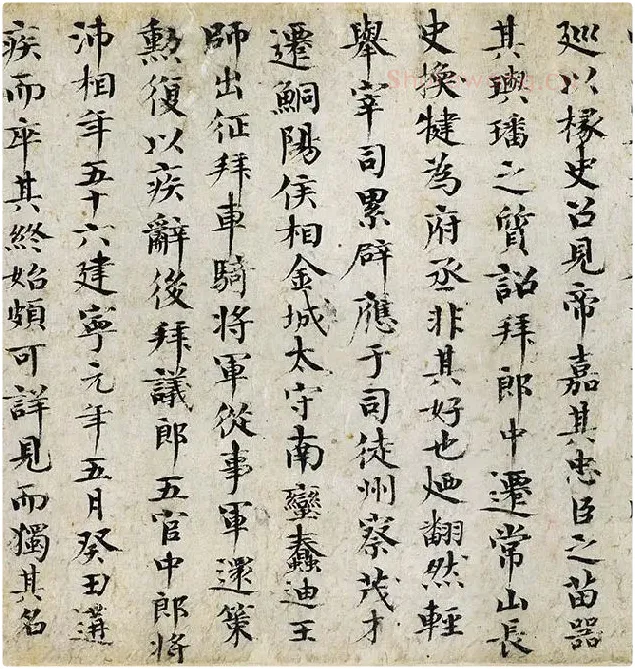 巡以椽史召見帝嘉其忠臣之苗器
其璵璠之質詔拜郎中遷常山長
史換犍為府丞非其好也廼翻然輕
舉宰司累辟應于司徒州察茂才
遷鮦陽侯相金城太守南蠻蠢迪王
師出征拜車騎將軍從事軍還策
勲復以疾辭後拜議郎五官中郎將
沛相年五十六建寧元年五月癸丑遘
疾而卒其終始頗可詳見而獨其名